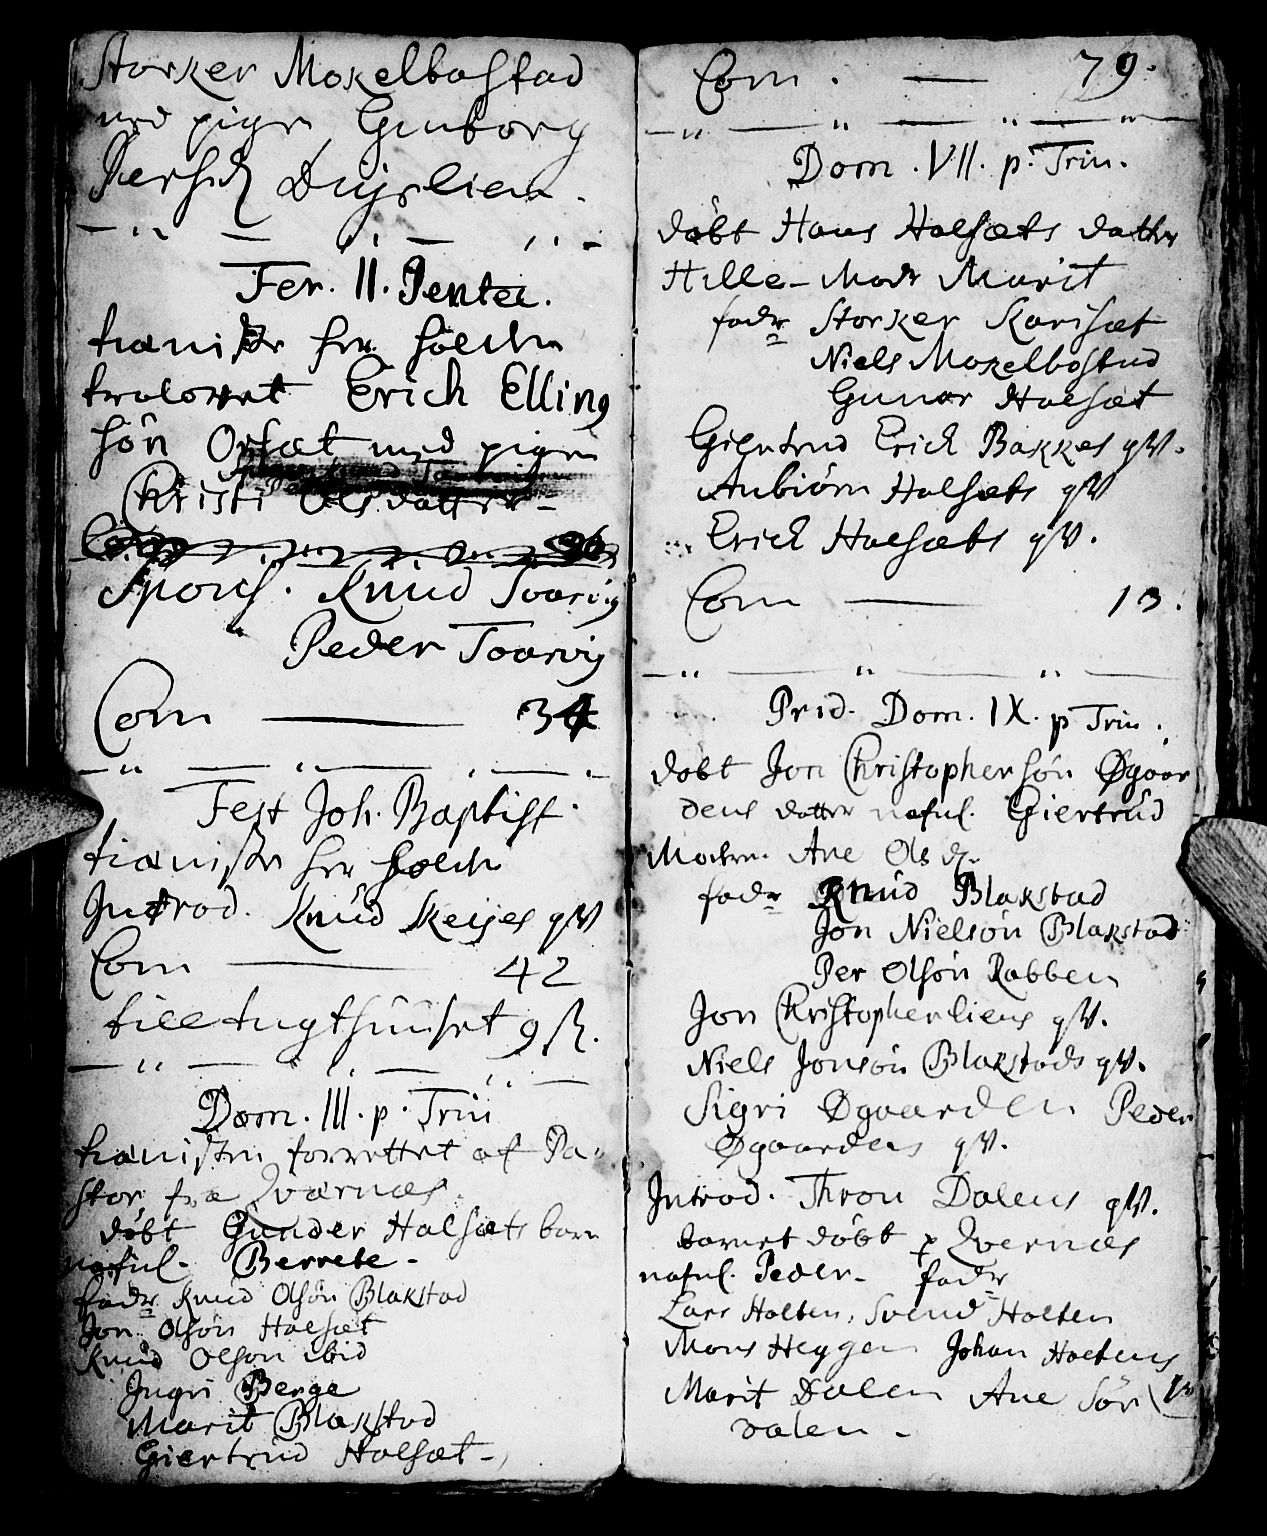 Storker Mokelbostad
med pigen Gunborg
Persdr
Fer. II. Pentec.
holden
trolovet Erich Elling
søn Orset med pigen
Christi Olsdatter
Spons. Knud Toarvig
Peder Toarvig
Com — 34
Fest Joh. Baptist.
Introd. Knud Skeises qv
Com — 42
till tugthuuset 9 ß.
Dom. III. p. Trin
tienisten forrettet af Pa-
stor fra Qvernæs.
døbt Gunder Halsæts barn
nafnl. Berrete.
fadr Knud Olsøn Blakstad
Jon Olsøn Halsæt
Knud Olson ibid
Ingri Berge
Marit Blakstad
Giertrud Halsæt
Com. — 79.
Dom. VII. p. Trin.
døbt Hans Halsæts datter
Hille Modr Marit
fadr Storker Karisæt
Niels Mokelbostad
Gunar Halsæt
Giertrud Erich Bakkes qv.
Anbiørn Halsæts qv
Erich Halsæts qv.
Com — 13.
Prid. Dom. IX. p Trin.
døbt Jon Christophersøn Øgaar
dens datter nafnl. Giertrud
Moder. Ane Ols dr.
fadr Knud Blakstad
Jon Nielsøn Blakstad
Per Olsøn Rabben
Jon Christopherliens qv.
Niels Jonsøn Blakstads qv.
Sigri Øgaarden Peder
Øgaardens qv.
Introd. Thron Dalens qv.
barnet døbt p Qvernæs
nafnl. Peder. fadr
Lars Holten, Svend Holten
Mons Heggen Johan Holtens
Marit Dalen Ane Sør
dalen.